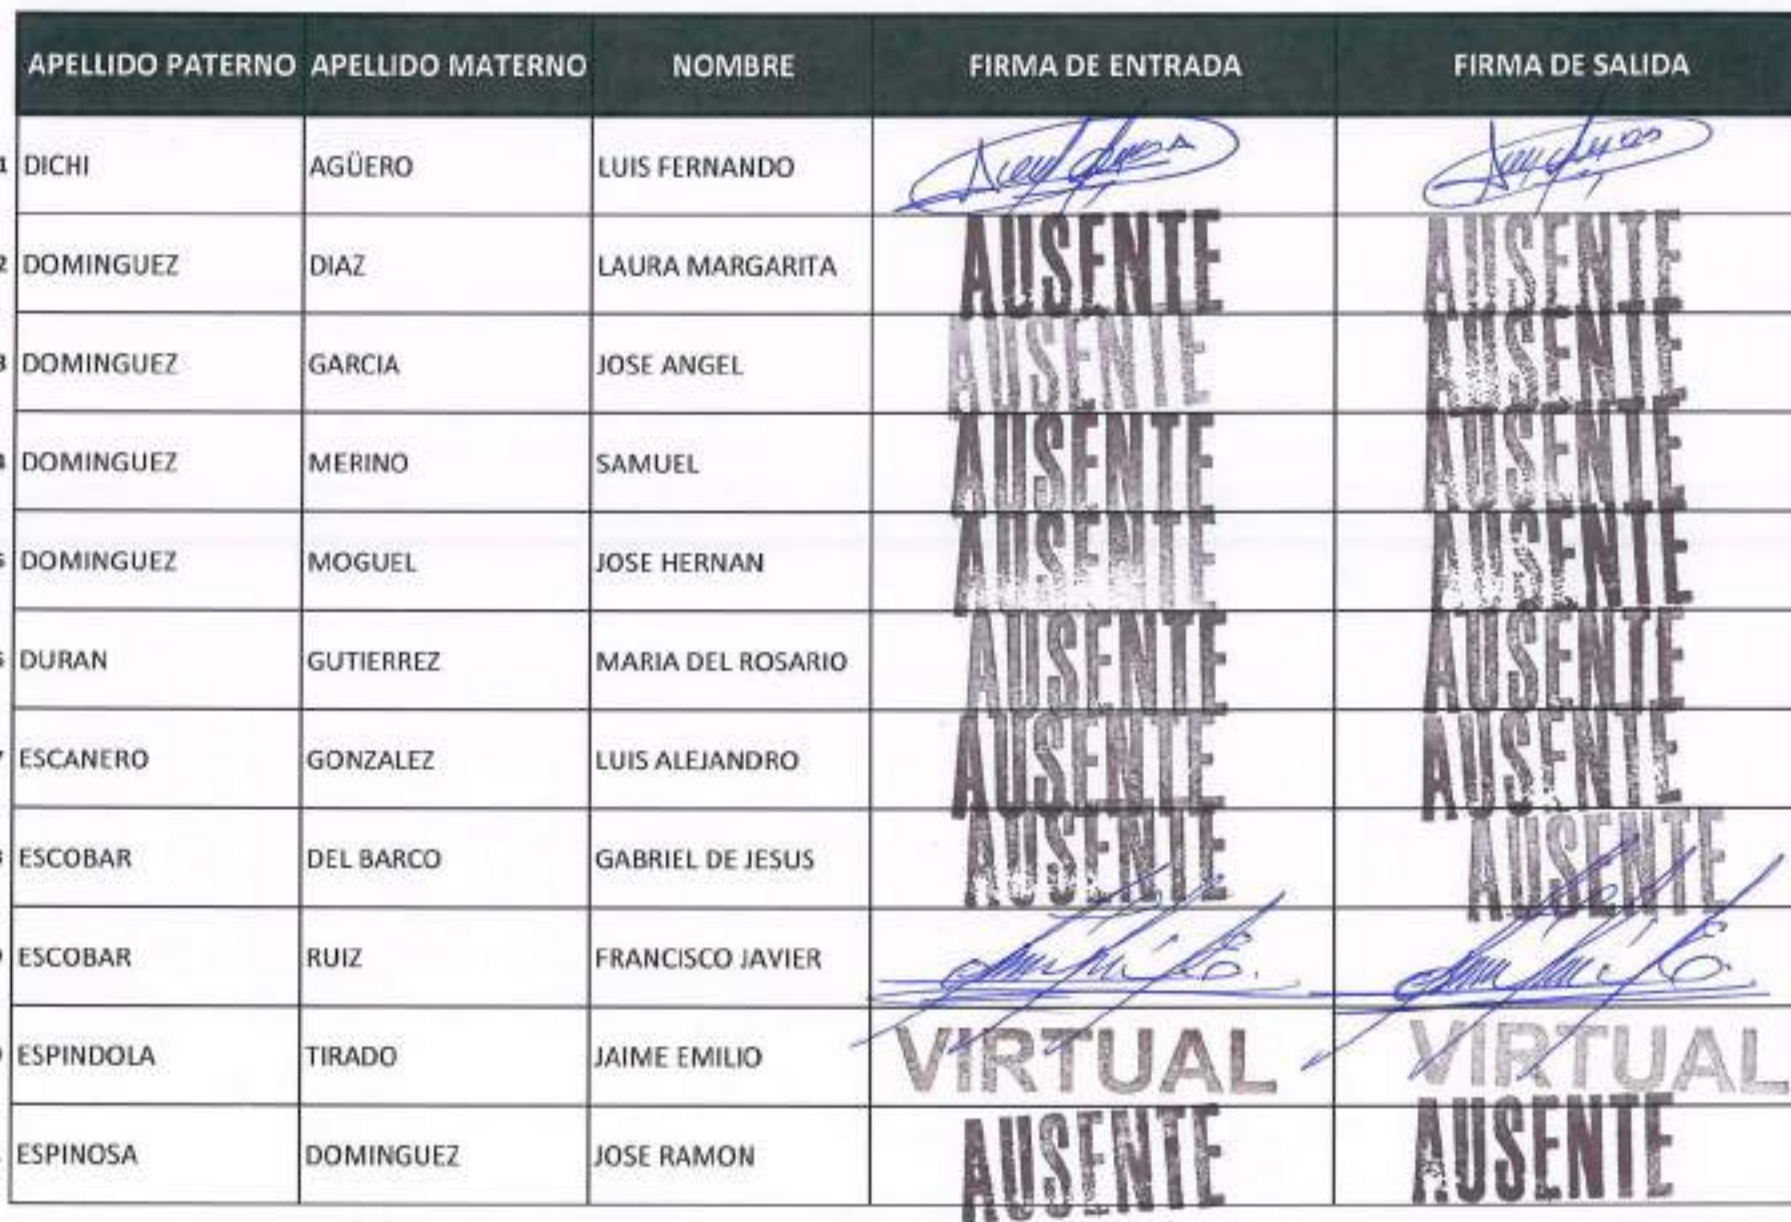 APELLIDO PATERNO APELLIDO MATERNO NOMBRE FIRMA DE ENTRADA FIRMA DE SALIDA
1 DICHI AGÜERO LUIS FERNANDO
2 DOMINGUEZ DIAZ LAURA MARGARITA AUSENTE AUSENTE
3 DOMINGUEZ GARCIA JOSE ANGEL AUSENTE AUSENTE
4 DOMINGUEZ MERINO SAMUEL AUSENTE AUSENTE
5 DOMINGUEZ MOGUEL JOSE HERNAN AUSENTE AUSENTE
6 DURAN GUTIERREZ MARIA DEL ROSARIO AUSENTE AUSENTE
7 ESCANERO GONZALEZ LUIS ALEJANDRO AUSENTE AUSENTE
8 ESCOBAR DEL BARCO GABRIEL DE JESUS AUSENTE AUSENTE
9 ESCOBAR RUIZ FRANCISCO JAVIER
ESPINDOLA TIRADO JAIME EMILIO VIRTUAL VIRTUAL
ESPINOSA DOMINGUEZ JOSE RAMON AUSENTE AUSENTE